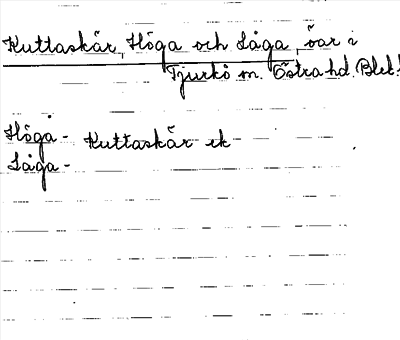 Kuttaskär, Höga och Låga, öar i
Tjurkö sn. Östra hd. Blek.
Höga- Kuttaskär ek
Låga-